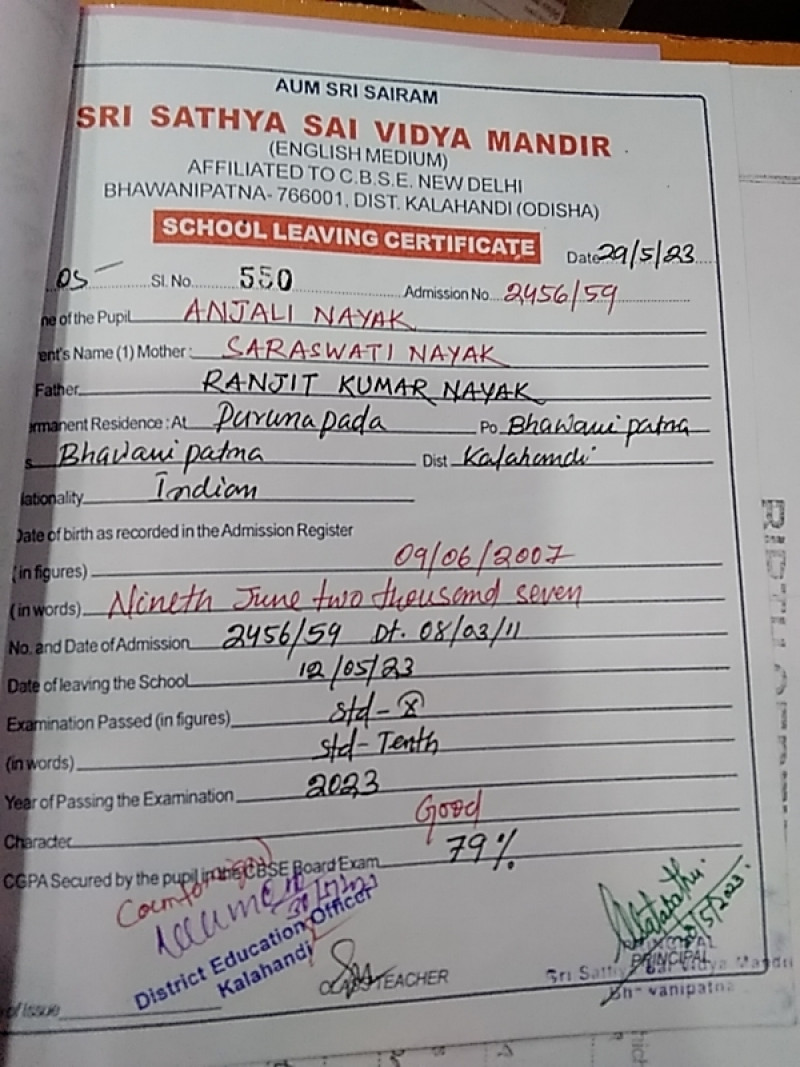 AUM SRI SAIRAM
SRI SATHYA SAI VIDYA MANDIR
(ENGLISH MEDIUM)
AFFILIATED TO C.B.S.E. NEW DELHI
BHAWANIPATNA- 766001, DIST. KALAHANDI (ODISHA)
SCHOOL LEAVING CERTIFICATE
Date 29/5/23
05 Sl. No. 550 Admission No. 2456/59
ne of the Pupil ANJALI NAYAK
ent's Name (1) Mother : SARASWATI NAYAK
Father RANJIT KUMAR NAYAK
rmanent Residence : At Purunapada Po Bhawanipatna
s Bhawanipatna Dist Kalahandi
lationality Indian
Date of birth as recorded in the Admission Register
(in figures) 09/06/2007
(in words) Nineth June two thousand seven
No. and Date of Admission 2456/59 Dt. 08/03/11
Date of leaving the School 12/05/23
Examination Passed (in figures) Std - X
(in words) Std - Tenth
Year of Passing the Examination 2023
Character Good
CGPA Secured by the pupil in the CBSE Board Exam 79%
District Education Officer
Kalahandi
CLASS TEACHER
PRINCIPAL
Sri Sathya Sai Vidya Mandir
Bhawanipatna
of Issue